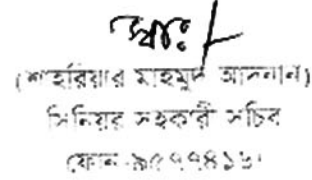 স্বাঃ
(শাহরিয়ার মাহমুদ আদনান)
সিনিয়র সহকারী সচিব
ফোন-৯৫৭৭৪১৬।